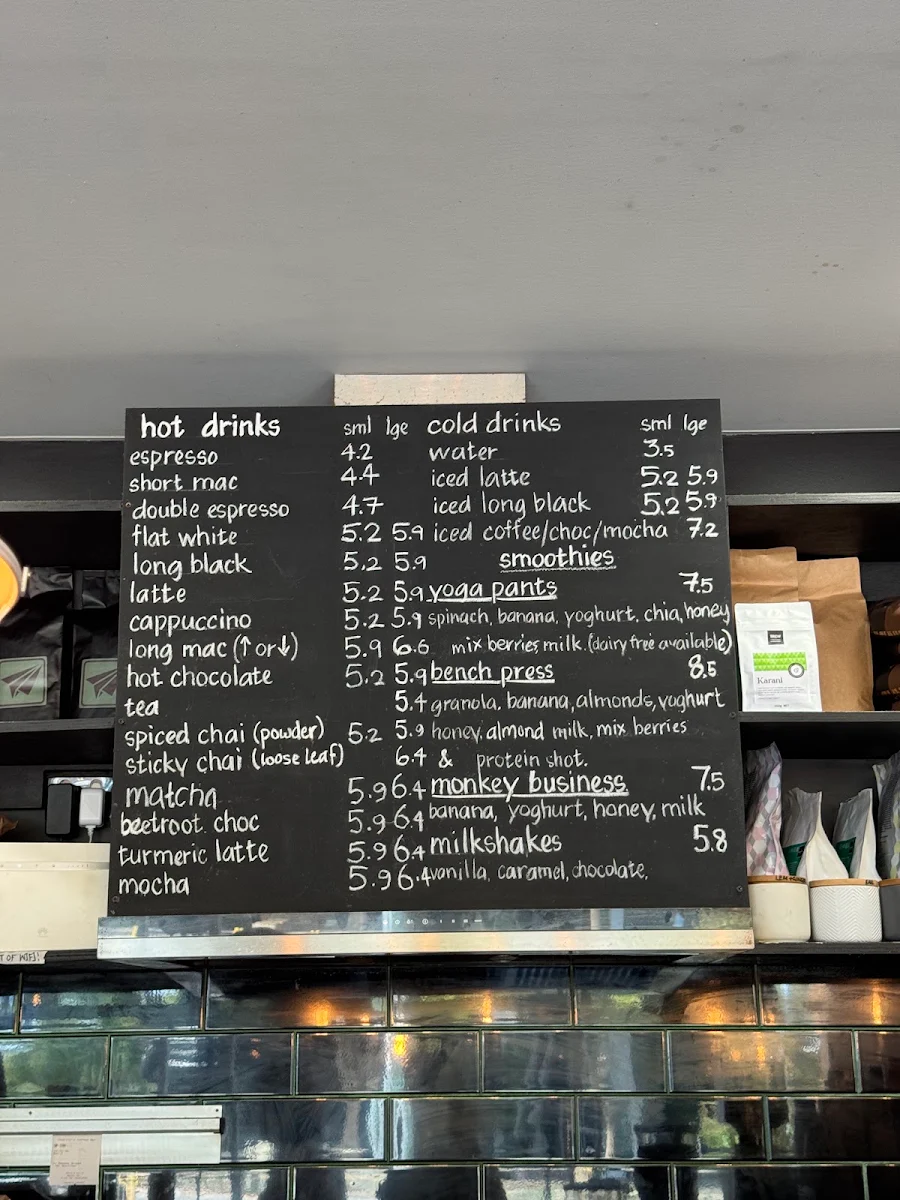 hot drinks sml lge
espresso 4.2
short mac 4.4
double espresso 4.7
flat white 5.2 5.9
long black 5.2 5.9
latte 5.2 5.9
cappuccino 5.2 5.9
long mac (↑ or ↓) 5.9 6.6
hot chocolate 5.2 5.9
tea 5.4
spiced chai (powder) 5.2 5.9
sticky chai (loose leaf) 6.4
matcha 5.9 6.4
beetroot choc 5.9 6.4
turmeric latte 5.9 6.4
mocha 5.9 6.4
cold drinks sml lge
water 3.5
iced latte 5.2 5.9
iced long black 5.2 5.9
iced coffee/choc/mocha 7.2
smoothies
yoga pants 7.5
spinach, banana, yoghurt, chia, honey
mix berries, milk. (dairy free available)
bench press 8.5
granola, banana, almonds, yoghurt
honey, almond milk, mix berries
& protein shot.
monkey business 7.5
banana, yoghurt, honey, milk
milkshakes 5.8
vanilla, caramel, chocolate,
Karani
T OF WIFI!